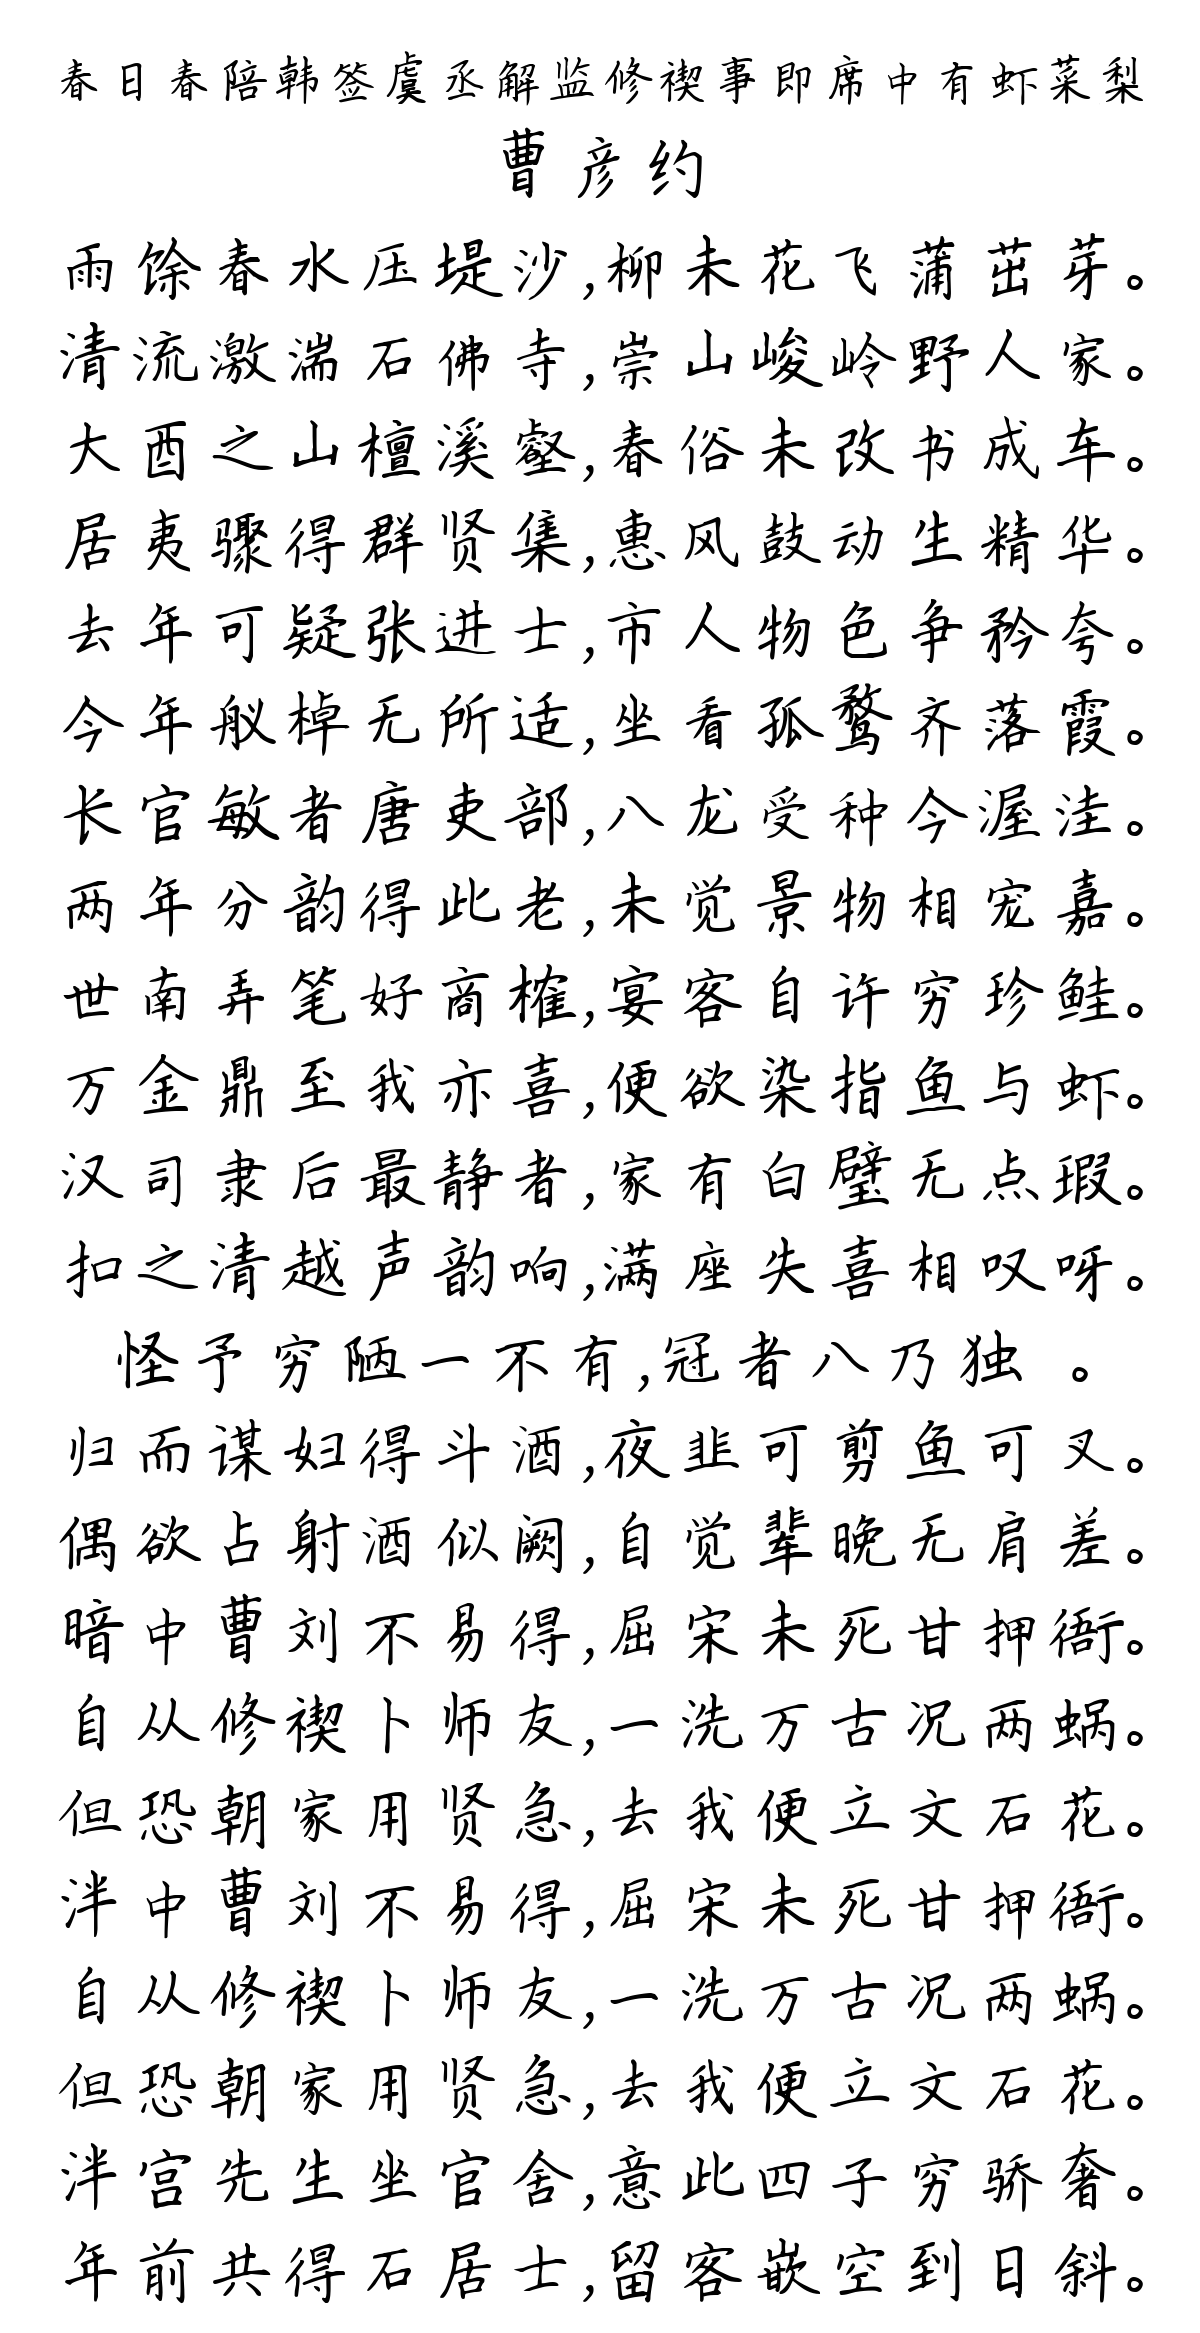 春日春陪韩签虞丞解监修禊事即席中有虾菜梨
曹彦约
雨馀春水压堤沙,柳未花飞蒲茁芽。
清流激湍石佛寺,崇山峻岭野人家。
大酉之山檀溪壑,春俗未改书成车。
居夷骤得群贤集,惠风鼓动生精华。
去年可疑张进士,市人物色争矜夸。
今年舣棹无所适,坐看孤鹜齐落霞。
长官敏者唐吏部,八龙受种今渥洼。
两年分韵得此老,未觉景物相宠嘉。
世南弄笔好商榷,宴客自许穷珍鲑。
万金鼎至我亦喜,便欲染指鱼与虾。
汉司隶后最静者,家有白璧无点瑕。
扣之清越声韵响,满座失喜相叹呀。
怪予穷陋一不有,冠者八乃独 。
归而谋妇得斗酒,夜韭可剪鱼可叉。
偶欲占射酒似阙,自觉辈晚无肩差。
暗中曹刘不易得,屈宋未死甘押衙。
自从修禊卜师友,一洗万古况两蜗。
但恐朝家用贤急,去我便立文石花。
泮中曹刘不易得,屈宋未死甘押衙。
自从修禊卜师友,一洗万古况两蜗。
但恐朝家用贤急,去我便立文石花。
泮宫先生坐官舍,意此四子穷骄奢。
年前共得石居士,留客嵌空到日斜。